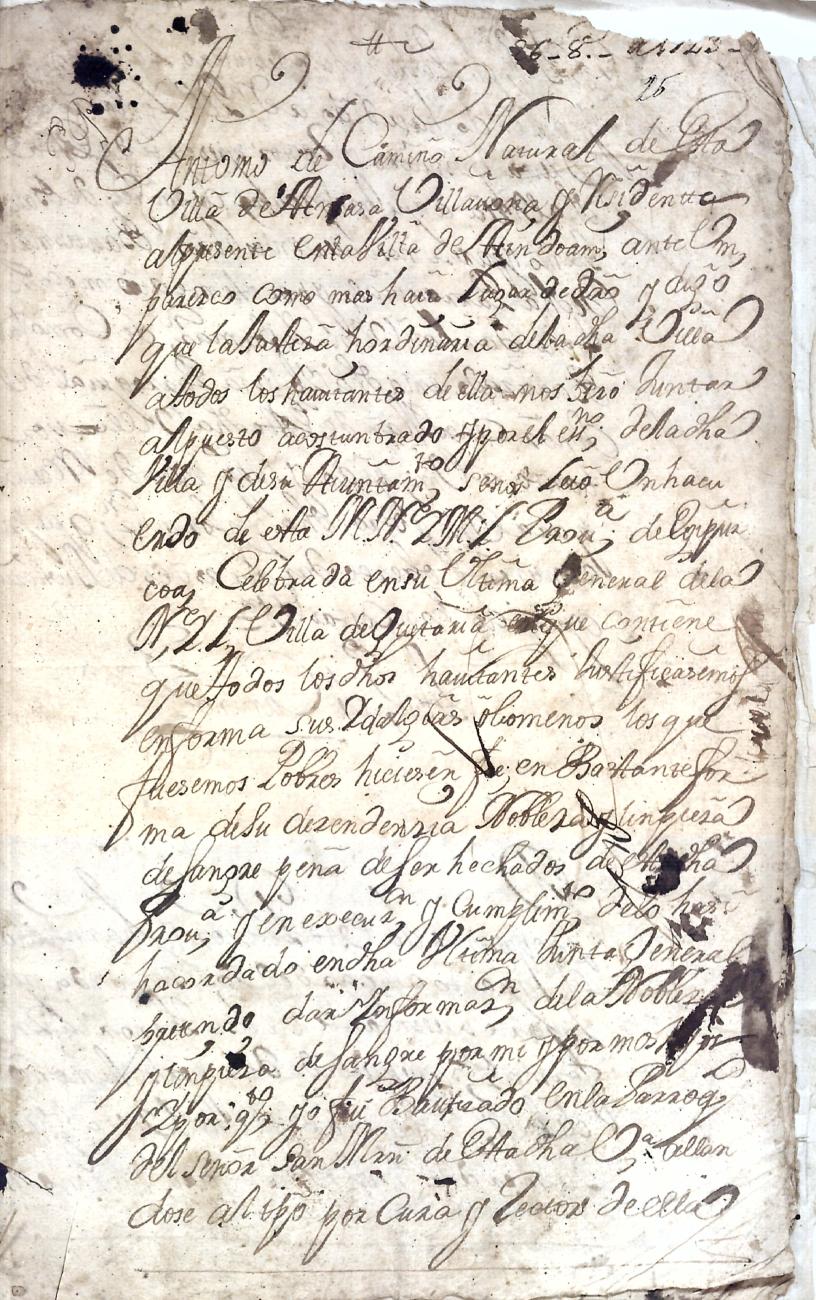 26-8.-
26
Antonio de Camino Natural de Esta
Villa de Villavona y Residentte
alpresente enlaVilla de Aindoain, ante Vm,
parezco como mas haia lugar de dro y digo
que laJusticia hordinaria de la dha Villa
atodos los havitantes de ella nos hizo Juntar
alpuesto acostunbrado yporel essno, deladha
Villa y desu Aiuntamto, senos leio Un
endo de esta M N Y M L Prouа, de Guipuz
coa, Celebrada ensu Ultima General dela
N, Y L, Villa deGuetaria enque contiene
queTodos losdhos havitantes Justificasemos
enforma sus Ydalgias olomenos los que
fuesemos Pobres hiciesen fe, en Bastantefor
ma desu dezendenzia Nobleza y limpieza
desangre pena deSer hechados de Estadha
Proua, y en execuzn y Cumplimto, delo
hacordado endha Ultima Junta General
pretendo dar Ynformazn, dela Nobleza
y limpieza desangre por mi y por mos
Y por qto yo fui Bautizado enla Parroqa
del señor San Mrn de Estadha Va allan
dose al tpo por Cura y Rector de ella